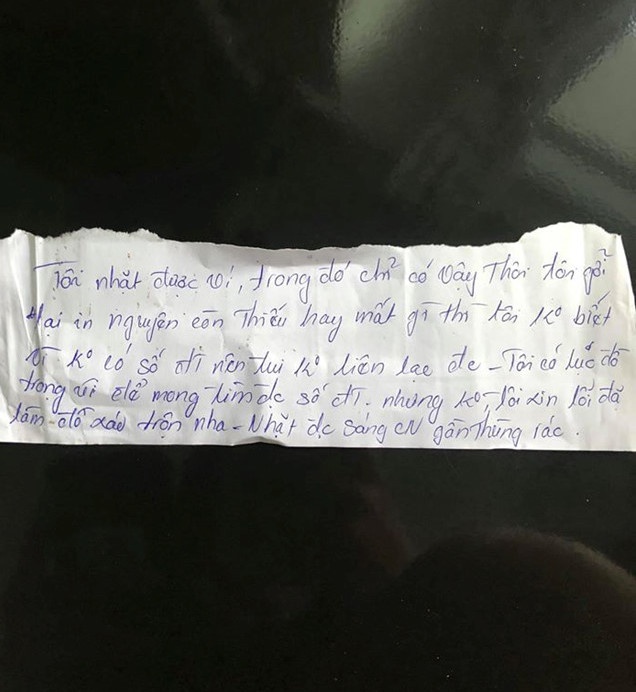 Tôi nhặt được ví, trong đó chỉ có vậy Thôi tôi gởi
lại in nguyên còn Thiếu hay mất gì thì tôi ko biết
vì ko có số đt nên tui ko liên lạc đc - Tôi có lục đồ
trong ví để mong tìm đc số đt. nhưng ko - Tôi xin lỗi đã
làm đồ xáo trộn nha - Nhặt đc sáng CN gần Thùng rác.